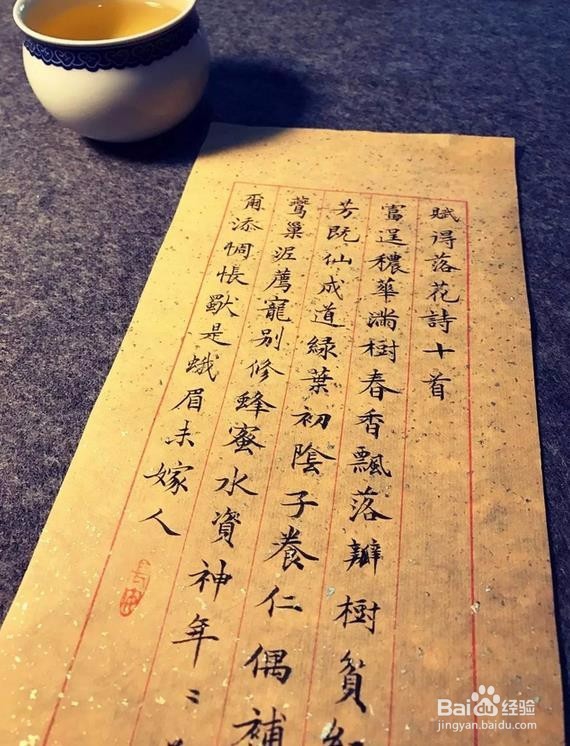 賦得落花詩十首
富逞穠華滿樹春香飄落瓣樹貧紅
芳既仙成道綠葉初陰子養仁偶補
鷰巢泥薦寵別修蜂蜜水資神年〻
爾添惆悵是蛾眉未嫁人
Baidu经验
jingyan.baidu.com